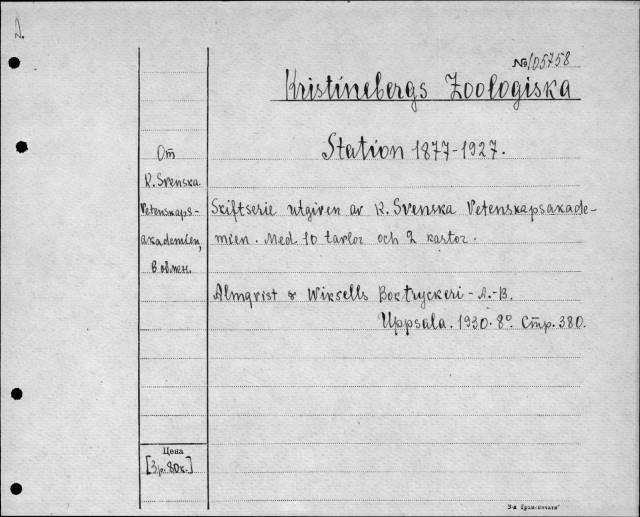 №105758
Kristinebergs Zoologiska
Station 1877-1927.
От
K. Svenska
Vetenskaps-
akademien,
в обмен.
Skiftserie utgiven av K. Svenska Vetenskapsakade-
mien. Med 10 tavlor och 2 kartor.
Almqvist & Wiksells Boktryckeri - A.-B.
Uppsala. 1930. 8° Стр. 380.
Цена
[3р. 80к.]